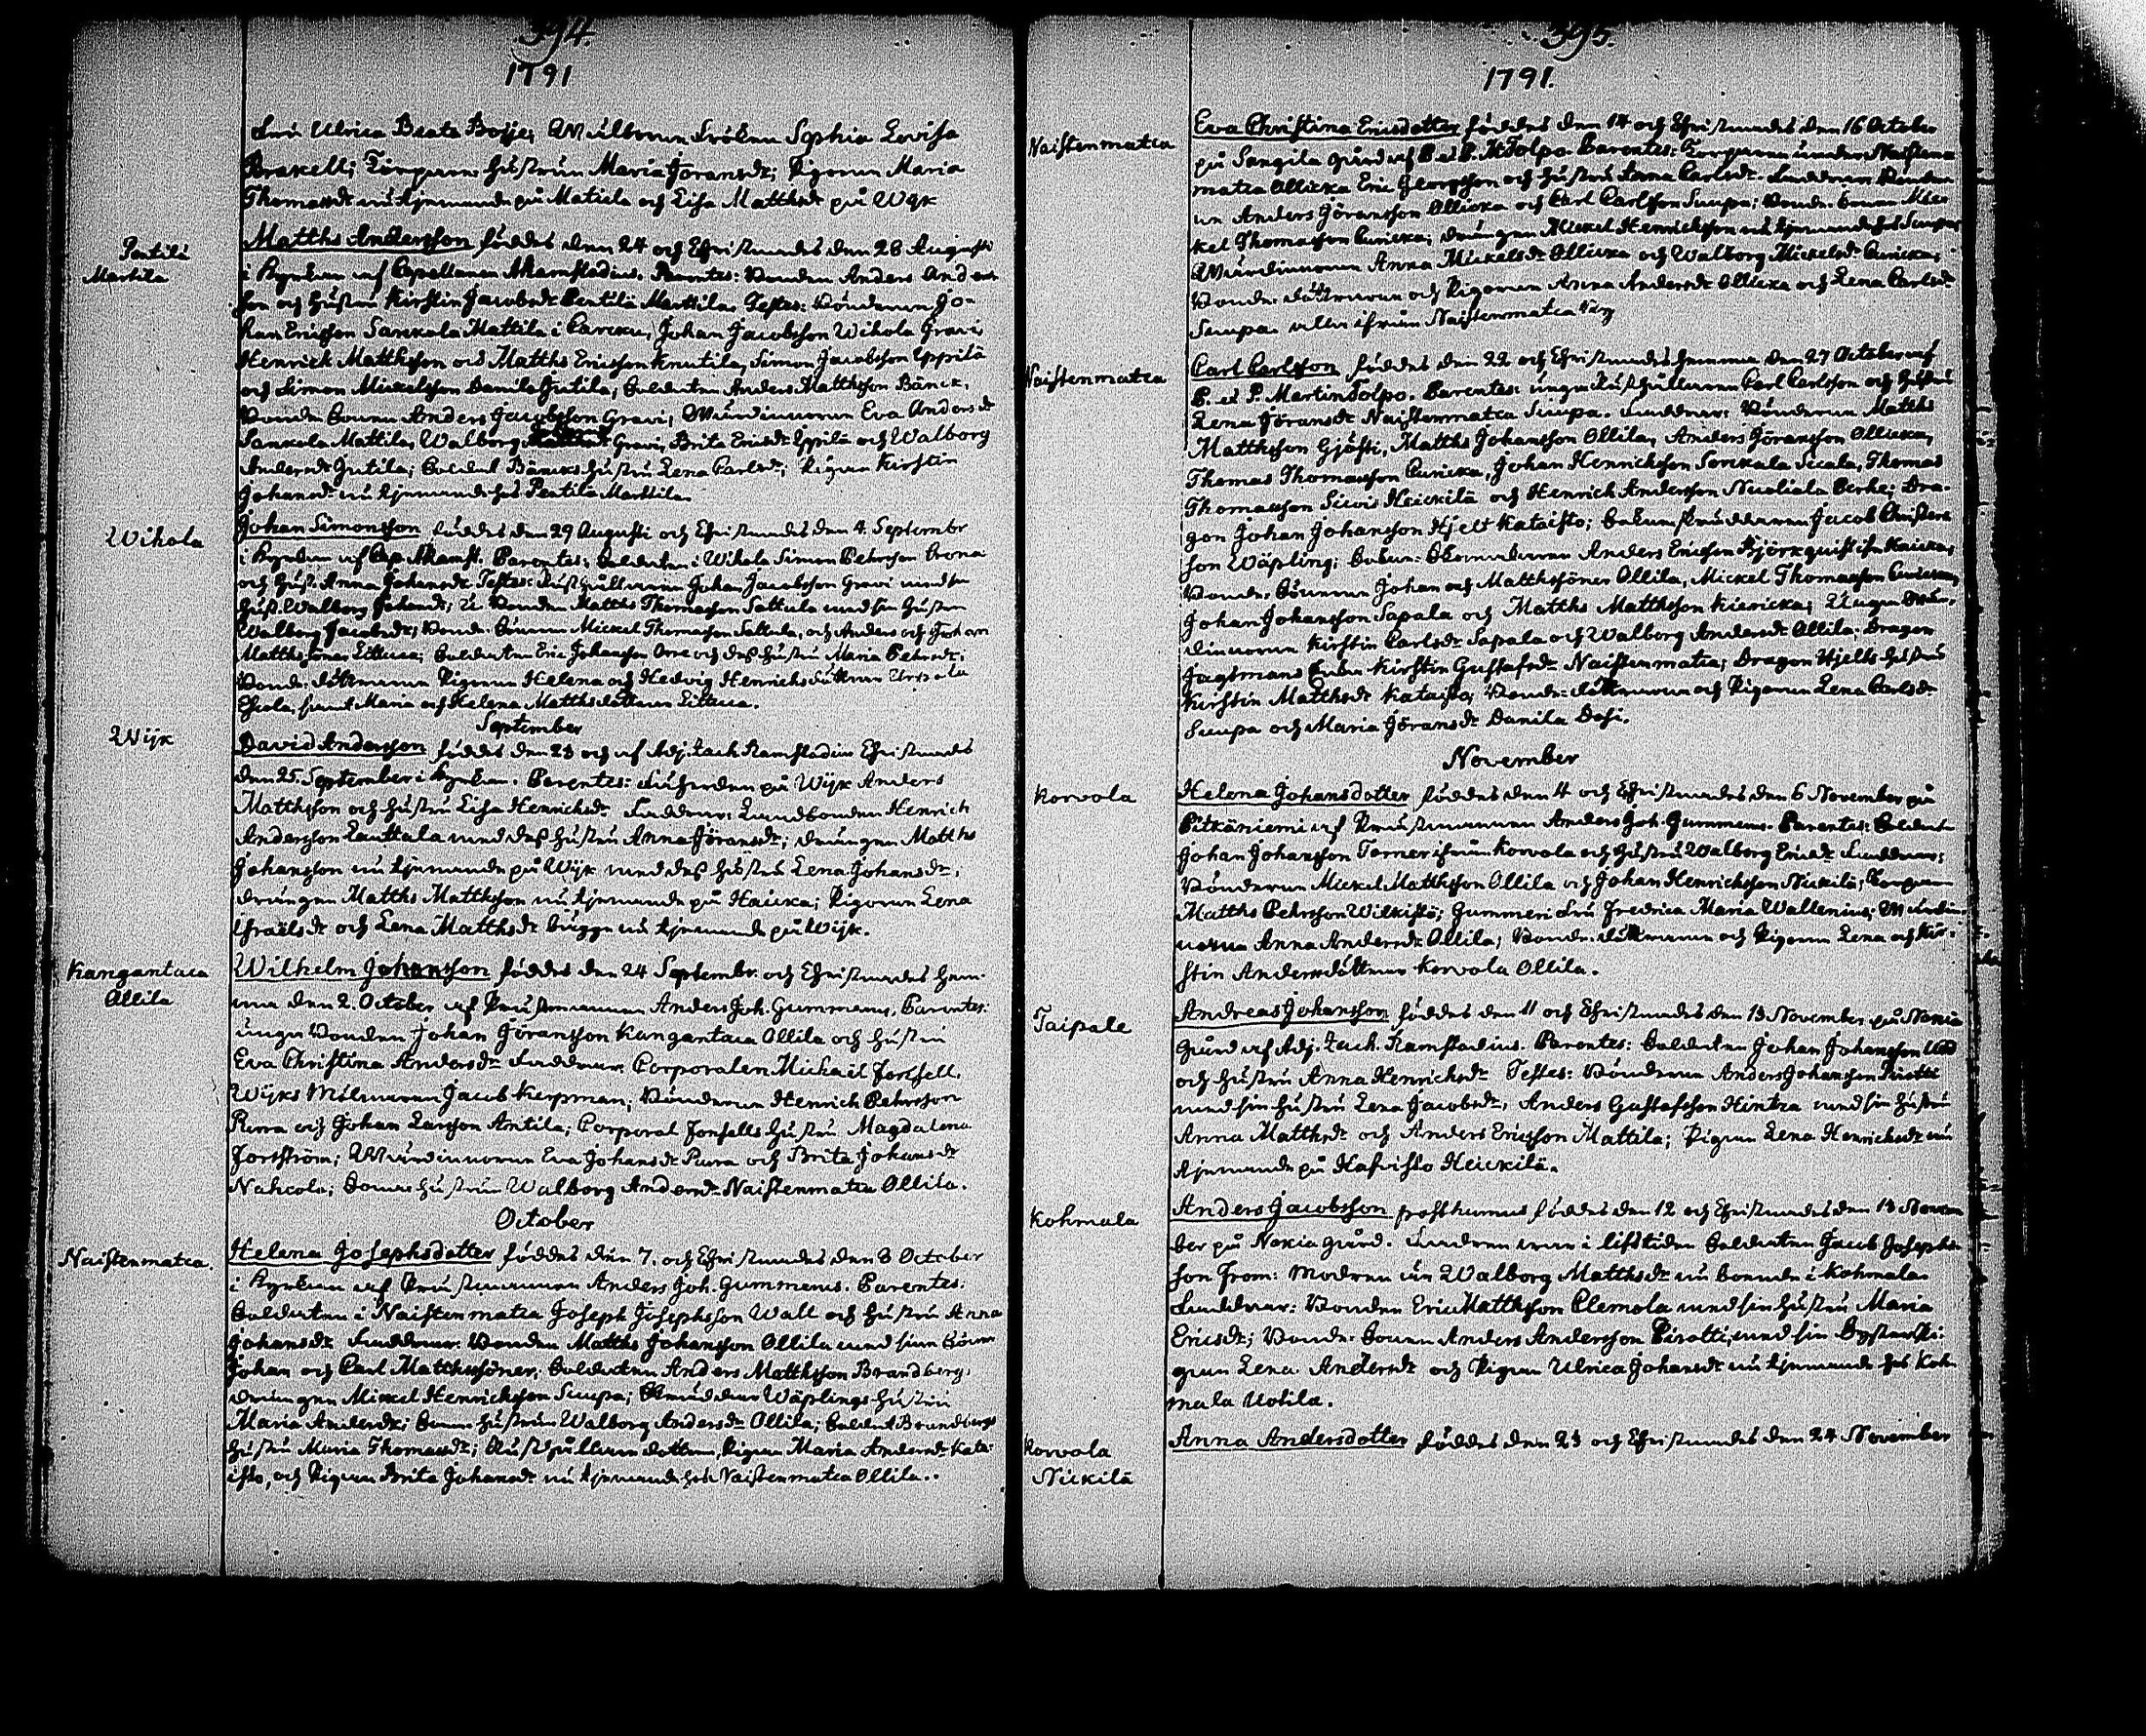 394.
1791
Fru Ulrica Beata Boije, Wälborne Fröken Sophia Lovisa
Brakell; Torpare hustrun Maria Jöransdr; Pigorne Maria
Thomasdr nu tjenande på Matiela och Lisa Matthsdr på Wijk
Pentilä
Martila
Matths Andersson föddes den 24 och Christnades den 28 Augusti
i Kyrkan af Capellanen Ramstadius. Parentes: Bonden Anders Anders
son och hustru Kirstin Jacobsdr Pentilä Marttila. Testes: Bönderne Jo-
han Ericsson Sankala Mattila i Careku, Johan Jacobsson Wihola Gravi,
Henrich Matthsson och Matths Ericsson Knutila, Simon Jacobsson Ypprilä
och Simon Mickelsson Danila Jutila; Soldaten Anders Matthsson Bänck,
Bonde Sonen Anders Jacobsson Gravi; Wärdinnorne Eva Andersdr
Sankala Mattila, Walborg Gravi, Brita Ericsdr Ypprilä och Walborg
Andersdr Jutila; Soldat Bäncks hustru Lena Carlsdr; Pigan Kirstin
Johansdr nu tjenande hos Pentilä Marttila.
Wihola
Johan Simonsson föddes den 29 Augusti och Christnades den 4. Septembr
i Kyrkan af Cap. Ramst. Parentes: Soldaten i Wihola Simon Pehrsson Brona
och hust. Anna Johansdr. Testes: Rusthållaren Johan Jacobsson Gravi med sin
hust. Walborg Johansdr; Bonden Matths Thomasson Sattula med sin hustru
Walborg Jacobsdr; Bonde Sönerne Mickel Thomasson Sattula, och Anders och Johan
Matthssöner Littuca; Soldaten Eric Johansson Orre och dess hustru Maria Pehrsdr;
Bonde döttrarne Pigorne Helena och Hedvig Henrichsdöttrar
samt Maria och Helena Matthsdöttrar Littuca.
September
Wijk
David Andersson föddes den 23 och af Adj. Zach. Ramstadius Christnades
den 25. September i Kyrkan. Parentes: på Wijk Anders
Matthsson och hustru Lisa Henrichsdr Faddrar: Landbonden Henrich
Andersson Lauttala med dess hustru Anna Jöransdr; drängen Matths
Johansson nu tjenande på Wijk med dess hustru Lena Johansdr,
drängen Matths Matthsson nu tjenande på Hauka; Pigorne Lena
Israëlsdr och Lena Matthsdr bägge nu tjenande på Wijk.
Kangantaca
Ollila
Wilhelm Johansson föddes den 24 Septembr. och Christnades hem-
ma den 2. October af Prästmannen Anders Joh. Gummerus. Parentes:
unga Bonden Johan Jöransson Kangantaca Ollila och hustru
Eva Christina Andersdr Faddrar: Corporalen Michaël Forsell,
Wijks Mölnaren Jacob Kerpman, Bönderne Henrich Pehrsson
Purra och Johan Larsson Antila; Corporal Forsells hustru Magdalena
Forsström; Wärdinnorne Eva Johansdr Purra och Brita Johansdr
Nahcola; Sonehustrun Walborg Andersdr Naistenmatca Ollila.
October
Naistenmatca.
Helena Josephsdotter föddes den 7. och Christnades den 8 October
i Kyrkan af Prästmannen Anders Joh. Gummerus. Parentes:
Soldaten i Naistenmatca Joseph Josephsson Wall och hustru Anna
Johansdr Faddrar: Bonden Matths Johansson Ollila med sina Söner
Johan och Carl Matthssöner; Soldaten Anders Matthsson Brandberg,
drängen Mickel Henrichsson Suupa; Skräddar Wäplings hustru
Maria Andersdr; Sone hustrun Walborg Andersdr Ollila; Soldat Brandbergs
hustru Maria Thomasdr; Rusthållare dottren, Pigan Maria Andersdr Kata-
isto, och Pigan Brita Johansdr nu tjenande hos Naistenmatca Ollila.
395.
1791.
Naistenmatca
Eva Christina Ericsdotter föddes den 14 och Christnades den 16 October
på Sangila gård af P. et P. M Tolpo. Parentes: Torparen under Naisten-
matca Ollicka Eric Georgsson och hustru Anna Carlsdr. Faddrar: Bönder-
ne Anders Jöransson Ollicka och Carl Carlsson Suupa; Bonde Sonen Mic-
kel Thomasson Curicka; drängen Mickel Henrichsson nu tjenande hos Suupa;
Wärdinnorne Anna Mickelsdr Ollicka och Walborg Mickelsdr Curicka;
Bonde döttrarne och Pigorne Anna Andersdr Ollicka och Lena Carlsdr
Suupa alla ifrån Naistenmatca by
Naistenmatca
Carl Carlsson föddes den 22 och Christnades hemma den 27 October af
P. et P. Martin Tolpo. Parentes: unga Rusthållaren Carl Carlsson och hustru
Lena Jöransdr Naistenmatca Suupa. Faddrar: Bönderne Matths
Matthsson Gjästi, Matths Johansson Ollila, Anders Jöransson Ollicka,
Thomas Thomasson Curicka, Johan Henrichsson Sorckala Sicala, Thomas
Thomasson Siuro Heickilä och Henrich Andersson Nuoliala Perke; Dra-
gon Johan Johansson Hjelt Kataisto; Sockenskräddaren Jacob Christers
son Wäpling; Socken Skomakaren Anders Ericsson Björkquist ifr. Kuricka,
Bonde Sönerne Johan och Matthssöner Ollila, Mickel Thomasson Curicka,
Johan Johansson Sapala och Matths Matthsson Kiericka; Unga Wär-
dinnorne Kirstin Carlsdr Sapala och Walborg Andersdr Ollila; Dragon
Jagtmans Enka Kirstin Gustafsdr Naistenmatca; Dragon Hjelts hustru
Kirstin Matthsdr Kataisto; Bonde döttrarne och Pigorne Lena Carlsdr
Suupa och Maria Jöransdr Danila Dosi.
November
Korvola
Helena Johansdotter föddes den 4 och Christnades den 6 November på
Pitkäniemi af Prästmannen Anders Joh. Gummerus. Parentes: Soldaten
Johan Johansson Torner ifrån Korvola och hustru Walborg Ericsdr Faddrar:
Bönderne Mickel Matthsson Ollila och Johan Henrichsson Nickilä; Torparen
Matths Pehrsson Wilkistö; Gummeri Fru Fredrica Maria Wallenius; Wärdin-
norna Anna Andersdr Ollila; Bonde döttrarne och Pigorne Lena och Kir-
stin Andersdöttrar Korvola Ollila.
Taipale
Andreas Johansson föddes den 11 och Christnades den 13 November på Nokia
gård af Adj. Zach. Ramstadius. Parentes: Soldaten Johan Johansson
och hustru Anna Henrichsdr Testes: Bönderne Anders Johansson Pirotti
med sin hustru Lena Jacobsdr, Anders Gustafsson Hintza med sin hustru
Anna Matthsdr och Anders Ericsson Mattila; Pigan Lena Henrichsdr nu
tjenande på Hafvisto Heickilä.
Kohmala
Anders Jacobsson posthumus föddes den 12 och Christnades den 13 Novem-
ber på Nokia gård. Fadren war i lifstiden Soldaten Jacob Josephs-
son From: Modren är Walborg Matthsdr nu boende i Kohmala
Faddrar: Bonden Eric Matthsson Clemola med sin hustru Maria
Ericsdr; Bonde Sonen Anders Andersson Pirotti, med sin Syster Pi-
gan Lena Andersdr och Pigan Ulrica Johansdr nu tjenande hos Koh-
mala Uotila.
Korvola
Nickilä
Anna Andersdotter föddes den 23 och Christnades den 24 November